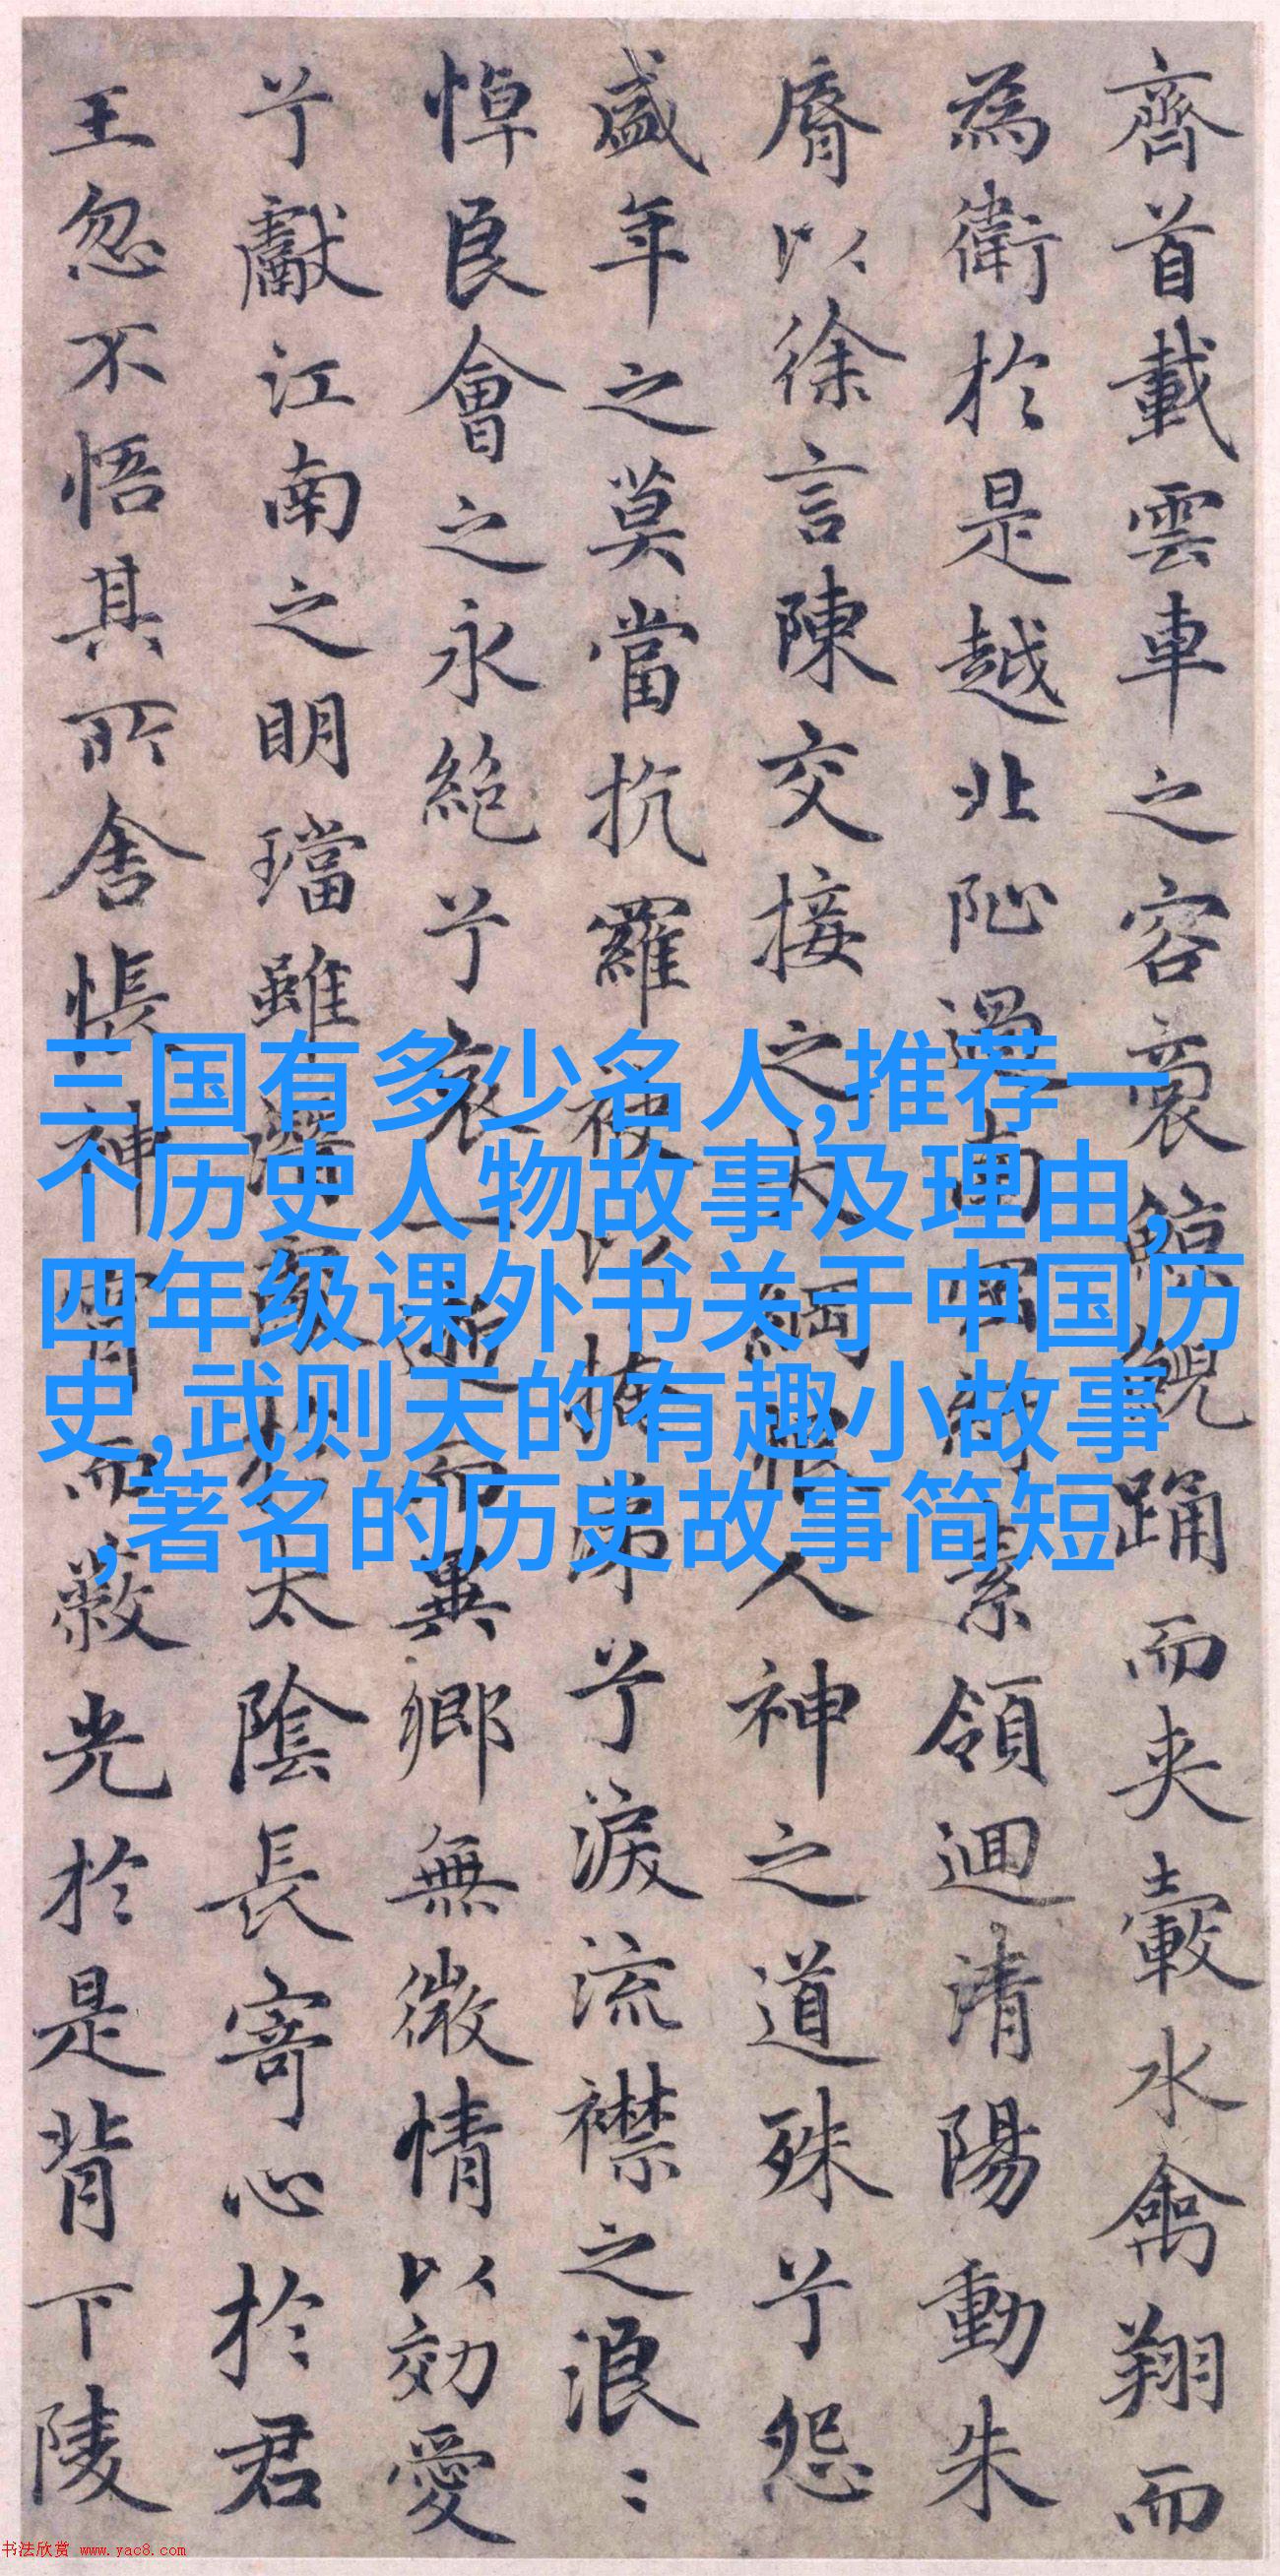 齊首載雲車之容裔鯨鯢踊而夾轂水禽翔而
為衛於是越北沚過南岡紆素領迴清陽動朱
脣以徐言陳交接之大綱恨人神之道殊兮怨
盛年之莫當抗羅袂以掩涕兮淚流襟之浪〻
悼良會之永絶兮哀一逝而異鄉無微情以効愛
兮獻江南之明璫雖潛處於太陰長寄心於君
王忽不悟其所舍悵神宵而蔽光於是背下陵
三国有多少名人,推荐一
个历史人物故事及理由,
四年级课外书关于中国历
史,武则天的有趣小故事
,著名的历史故事简短
书法欣赏 www.yac8.com